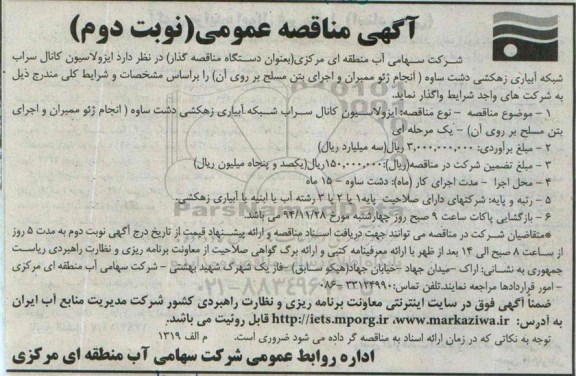 آگهی مناقصه عمومی(نوبت دوم)
شرکت سهامی آب منطقه ای مرکزی(بعنوان دستگاه مناقصه گذار) در نظر دارد ایزولاسیون کانال سراب
شبکه آبیاری زهکشی دشت ساوه ( انجام ژئو ممبران و اجرای بتن مسلح بر روی آن) را براساس مشخصات و شرایط کلی مندرج ذیل
به شرکت های واجد شرایط واگذار نماید.
۱ - موضوع مناقصه - نوع مناقصه: ایزولاسیون کانال سراب شبکه آبیاری زهکشی دشت ساوه ( انجام ژئو ممبران و اجرای
بتن مسلح بر روی آن) - یک مرحله ای
۲ - مبلغ برآوردی: ۳,۰۰۰,۰۰۰,۰۰۰ ریال(سه میلیارد ریال)
۳ - مبلغ تضمین شرکت در مناقصه(ریال):۱۵۰,۰۰۰,۰۰۰ریال(یکصد و پنجاه میلیون ریال)
۴ - محل اجرا - مدت اجرای کار (ماه): دشت ساوه - ۱۵ ماه
۵ - رتبه و پایه: شرکتهای دارای صلاحیت پایه۱ یا ۲ یا ۳ رشته آب یا ابنیه یا آبیاری زهکشی.
۶ - بازگشایی پاکات ساعت ۹ صبح روز چهارشنبه مورخ ۹۴/۱۱/۲۸ می باشد.
*متقاضیان شرکت در مناقصه می توانند جهت دریافت اسناد مناقصه و ارائه پیشنهاد قیمت از تاریخ درج آگهی نوبت دوم به مدت ۵ روز
از ساعت ۸ صبح الی ۱۴ بعد از ظهر با ارائه معرفینامه کتبی و ارائه برگ گواهی صلاحیت از معاونت برنامه ریزی و نظارت راهبردی ریاست
جمهوری به نشانی: اراک -میدان جهاد -خیابان جهاد(هپکو سابق)- فاز یک شهرک شهید بهشتی - شرکت سهامی آب منطقه ای مرکزی
- امور قراردادها مراجعه نمایند.تلفن تماس: ۳۳۱۲۴۹۹۰-۰۸۶
ضمناً آگهی فوق در سایت اینترنتی معاونت برنامه ریزی و نظارت راهبردی کشور شرکت مدیریت منابع آب ایران
به آدرس: http://iets.mporg.ir ،www.markaziwa.ir قابل رونیت می باشد.
توجه به نکاتی که در زمان ارائه اسناد به مناقصه گر داده می شود ضروری است. م الف ۱۳۱۹
اداره روابط عمومی شرکت سهامی آب منطقه ای مرکزی